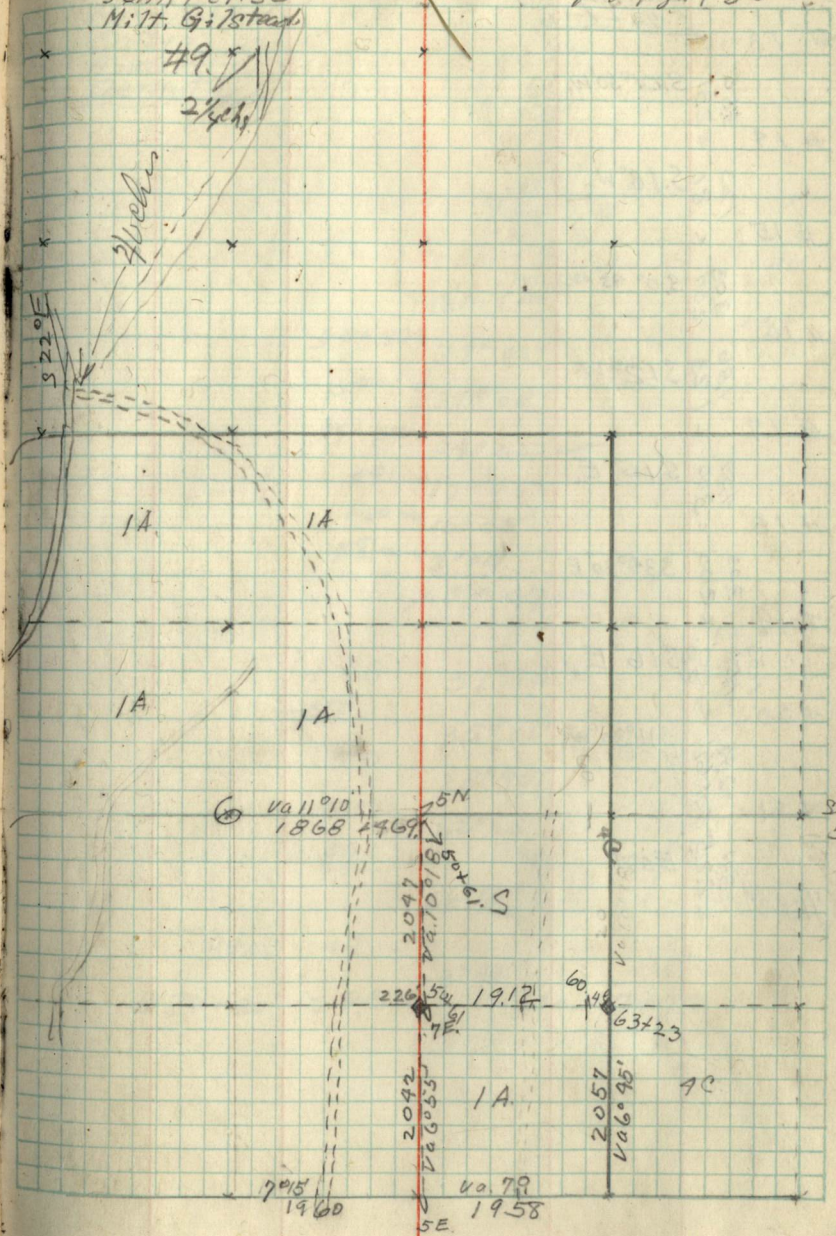 Milt. Gilstead
#9.
2¼chs
S 22°E
1A
1A
1A
1A
6
va 11°10
1868 +469
5N
50+61
5
2047
va.10°18'
226
54
61
7E
1912
60
49
63+23
2042
va 6°55'
1A
2057
va 6° 45'
4C
7°15'
1960
va. 79
1958
5E